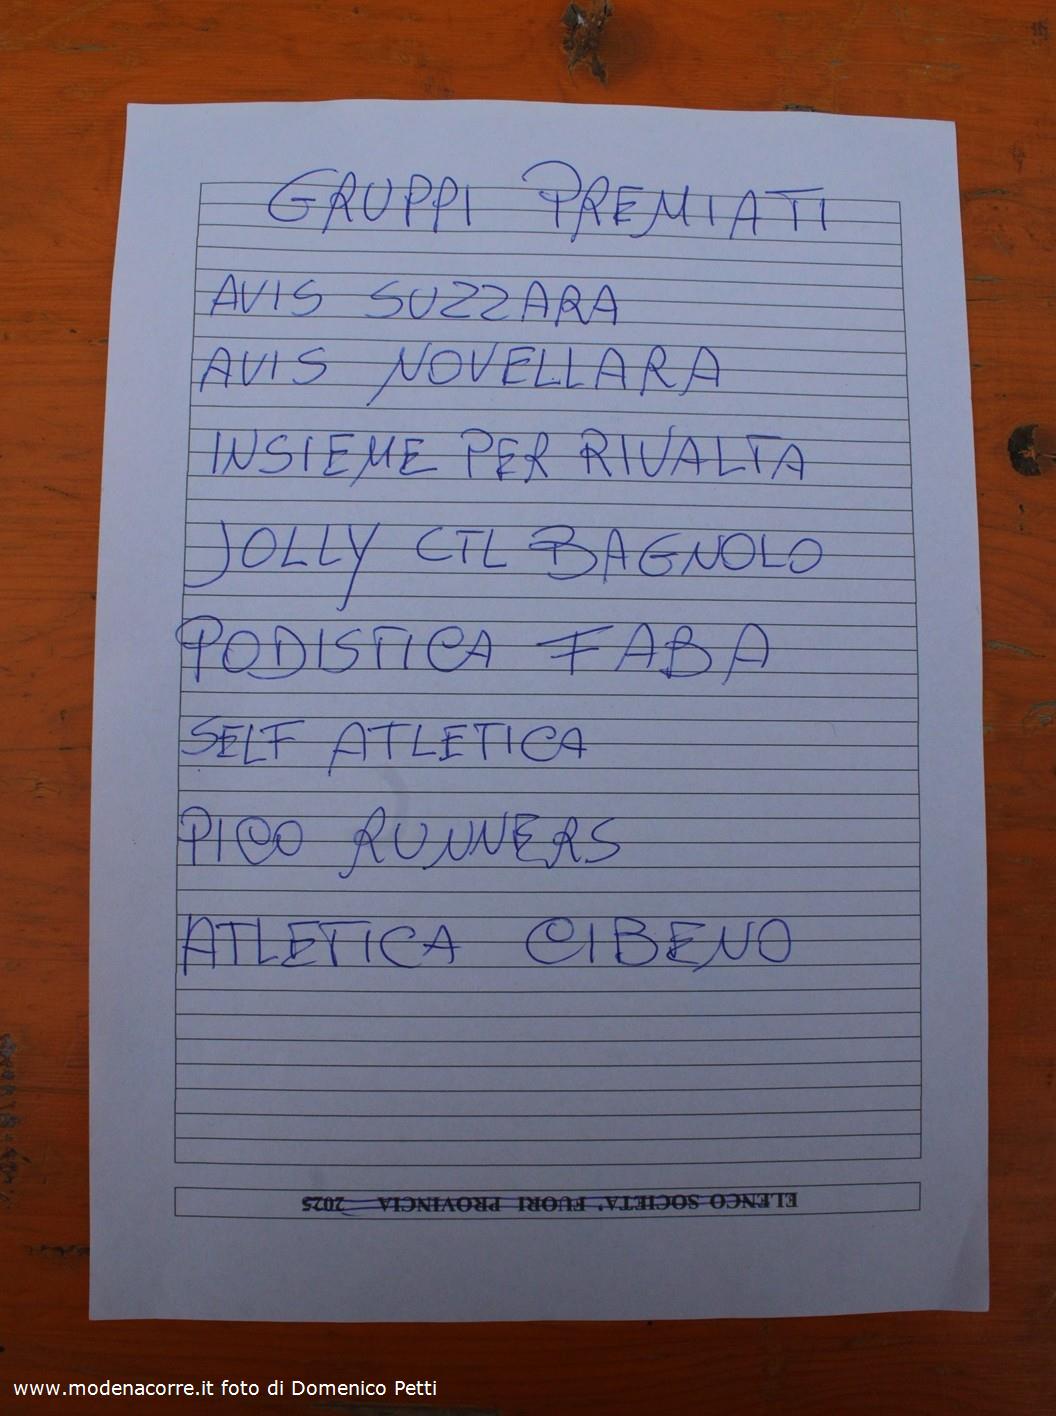 GRUPPI PREMIATI
AVIS SUZZARA
AVIS NOVELLARA
INSIEME PER RIVALTA
JOLLY CTL BAGNOLO
PODISTICA FABA
SELF ATLETICA
PICO RUNNERS
ATLETICA CIBENO
ELENCO SOCIETA' FUORI PROVINCIA 2025
www.modenacorre.it foto di Domenico Petti